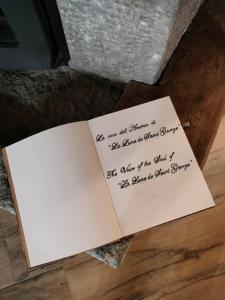 La voce dell'Anima di
"La Lana de Saint George"
The Voice of the Soul of
"La Lana de Saint George"